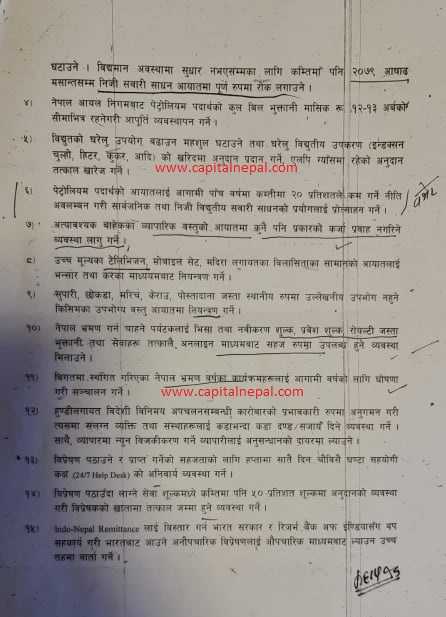 घटाउने । विद्यमान अवस्थामा सुधार नभएसम्मका लागि कम्तिमा पनि २०७९ आषाढ
मसान्तसम्म निजी सवारी साधन आयातमा पूर्ण रुपमा रोक लगाउने ।
www.capitalnepal.com
४) नेपाल आयल निगमबाट पेट्रोलियम पदार्थको कुल बिल भुक्तानी मासिक रू .१२-१३ अर्बको
सीमाभित्र रहनेगरी आपूर्ति व्यवस्थापन गर्ने ।
५) विद्युतको घरेलु उपयोग बढाउन महशुल घटाउने तथा घरेलु विद्युतीय उपकरण (इन्डक्सन
चुल्हो, हिटर, कुकर, आदि) को खरिदमा अनुदान प्रदान गर्ने, एलपि ग्याँसमा रहेको अनुदान
तत्काल खारेज गर्ने ।
www.capitalnepal.com
६) पेट्रोलियम पदार्थको आयातलाई आगामी पाँच वर्षमा कम्तीमा २० प्रतिशतले कम गर्ने नीति
अवलम्बन गरी सार्वजनिक तथा निजी विद्युतीय सवारी साधनको प्रयोगलाई प्रोत्साहन गर्ने ।
७) अत्यावश्यक बाहेकका व्यापारिक वस्तुको आयातमा कुनै पनि प्रकारको कर्जा प्रवाह नगरिने
व्यवस्था लागु गर्ने ।
८) उच्च मूल्यका टेलिभिजन, मोबाइल सेट, मदिरा लगायतका विलासिताका सामानको आयातलाई
भन्सार तथा करका माध्यमबाट नियन्त्रण गर्ने ।
९) सुपारी, छोकडा, मरिच, केराउ, पोस्तादाना जस्ता स्थानीय रुपमा उल्लेखनीय उपभोग नहुने
किसिमका उपभोग्य वस्तु आयातमा नियन्त्रण गर्ने ।
१०) नेपाल भ्रमण गर्न चाहने पर्यटकलाई भिसा तथा नवीकरण शुल्क, प्रवेश शुल्क, रोयल्टी जस्ता
भुक्तानी तथा सेवाहरू तत्कालै अनलाइन माध्यमबाट सहज रुपमा उपलब्ध हुने व्यवस्था
मिलाउने ।
११) बिगतमा स्थगित गरिएका नेपाल भ्रमण वर्षका कार्यक्रमहरूलाई आगामी वर्षको लागि घोषणा
गरी सञ्चालन गर्ने ।
www.capitalnepal.com
१२) हुण्डीलगायत विदेशी विनिमय अपचलनसम्बन्धी कारोबारको प्रभावकारी रुपमा अनुगमन गरी
त्यसमा संलग्न व्यक्ति तथा संस्थाहरूलाई कडाभन्दा कडा दण्ड/सजायँ दिने व्यवस्था गर्ने ।
साथै, व्यापारमा न्यून बिजकीकरण गर्ने व्यापारीलाई अनुसन्धानको दायरमा ल्याउने ।
१३) विप्रेषण पठाउने र प्राप्त गर्नेको सहजताको लागि हप्तामा सातै दिन चौबिसै घण्टा सहयोगी
कक्ष (24/7 Help Desk) को अनिवार्य व्यवस्था गर्ने ।
१४) विप्रेषण पठाउँदा लाग्ने सेवा शुल्कमध्ये कम्तिमा पनि ५० प्रतिशत शुल्कमा अनुदानको व्यवस्था
गरी विप्रेषकको खातामा तत्काल जम्मा हुने व्यवस्था गर्ने ।
१५) Indo-Nepal Remittance लाई विस्तार गर्न भारत सरकार र रिजर्भ बैंक अफ इण्डियासँग थप
सहकार्य गरी भारतबाट आउने अनौपचारिक विप्रेषणलाई औपचारिक माध्यमबाट ल्याउन उच्च
तहमा वार्ता गर्ने ।